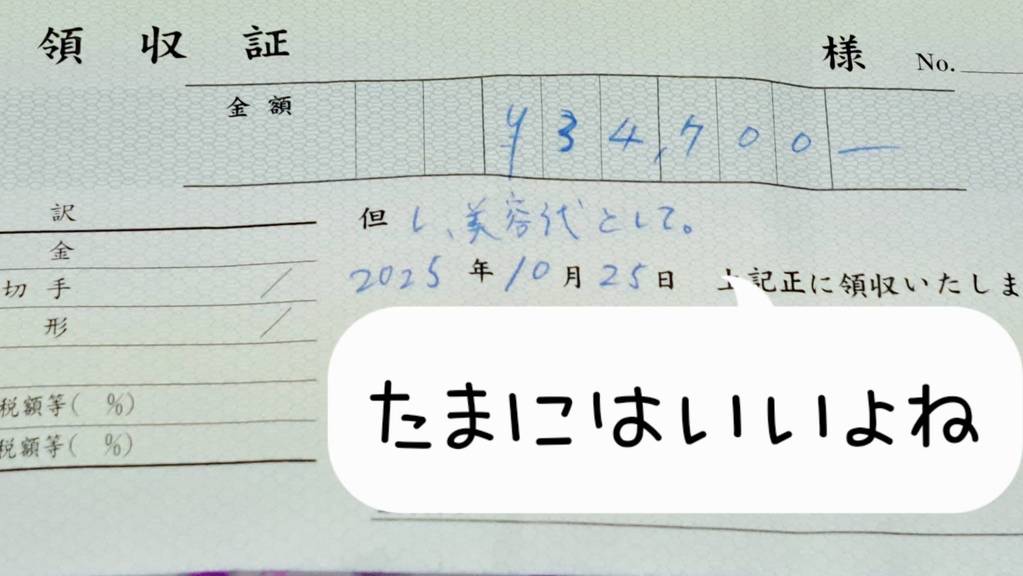 領収証
様 No.
金額 ¥34,700ー
訳
但し、美容代として。
金
切手 /
2025年10月25日 上記正に領収いたしま
形 /
税額等( %)
税額等( %)
たまにはいいよね